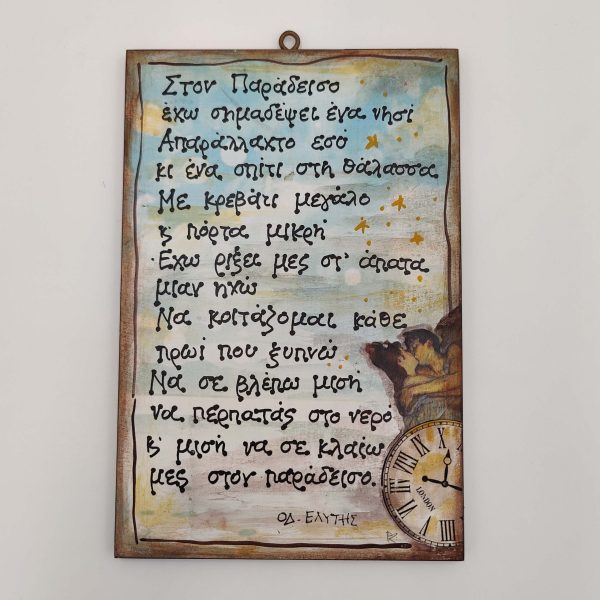 Στον Παράδεισο
έχω σημαδέψει ένα νησί
Απαράλλαχτο εσύ
κι ένα σπίτι στη θάλασσα
Με κρεβάτι μεγάλο
κ πόρτα μικρή
Έχω ρίξει μες στ' άπατα
μιαν ηχώ
Να κοιτάζομαι κάθε
πρωί που ξυπνώ
Να σε βλέπω μισή
να περπατάς στο νερό
κ' μισή να σε κλαίω
μες στον παράδεισο.
ΟΔ. ΕΛΥΤΗΣ
XII
I
II
III
IIII
V
VI
VII
VIII
IX
X
XI
LONDON